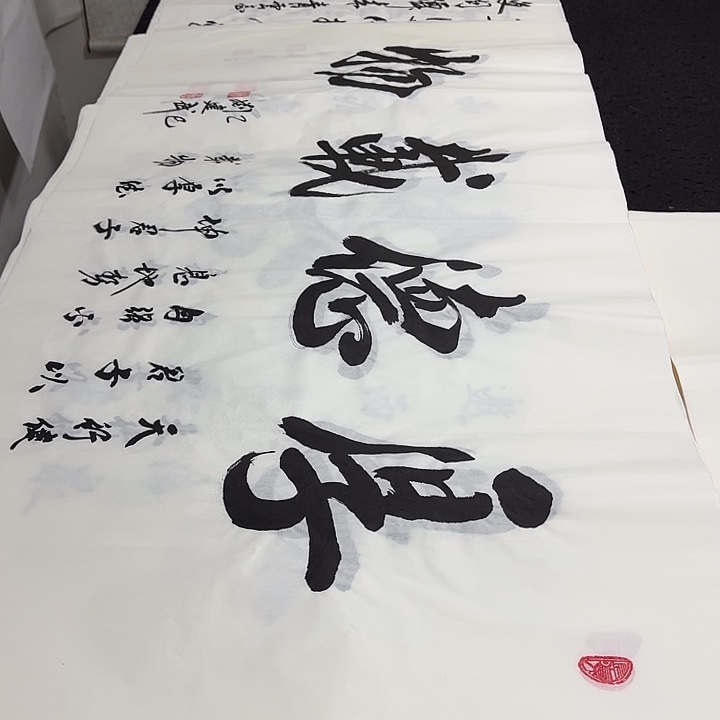 厚德載物
天行健
君子以
自強不
息地勢
坤君子
以厚德
載物
乙巳